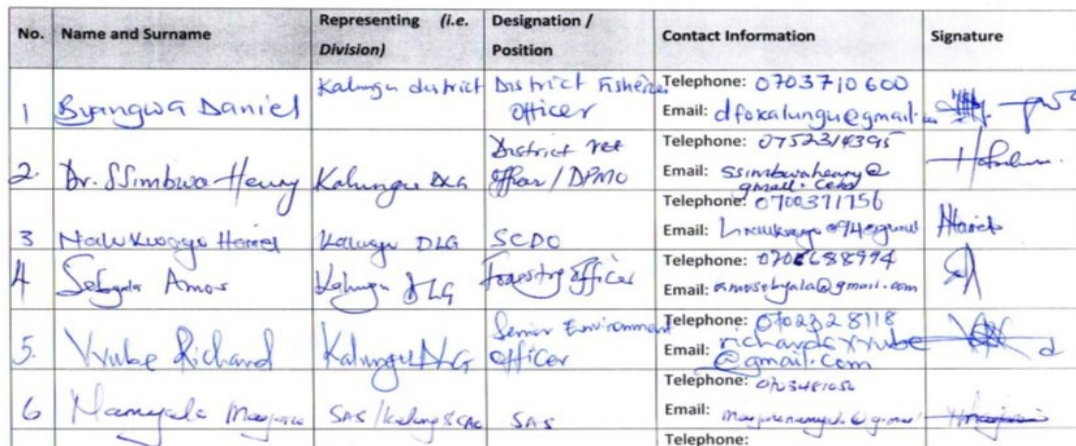 No. Name and Surname Representing (i.e. Division) Designation / Position Contact Information Signature
1 Byangwa Daniel Kalungu district District Fisheries Officer Telephone: 0703710600
Email: dfokalungu@gmail.
2. Dr. SSimbwa Henry Kalungu DLG District Vet Officer / DPMO Telephone: 0752314395
Email: ssimbwahenry@gmail.com
3 Kalungu DLG SCDO Telephone: 0700371756
Email:
4 Sebyala Amos Kalungu DLG Forestry Officer Telephone:
Email: amosebyala@gmail.com
5. Vvube Richard Kalungu DLG Senior Environment Officer Telephone: 0702328118
Email: richardsvvube@gmail.com
6 Namyalo SAS SAS Telephone:
Email:
Telephone: